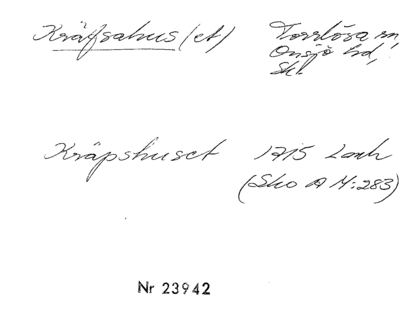 Kräfsahus (et) Torrlösa sn,
Onsjö hd,
Skl.
Kräpshuset 1715 Lanh
(Sko A M:283)
Nr 23942